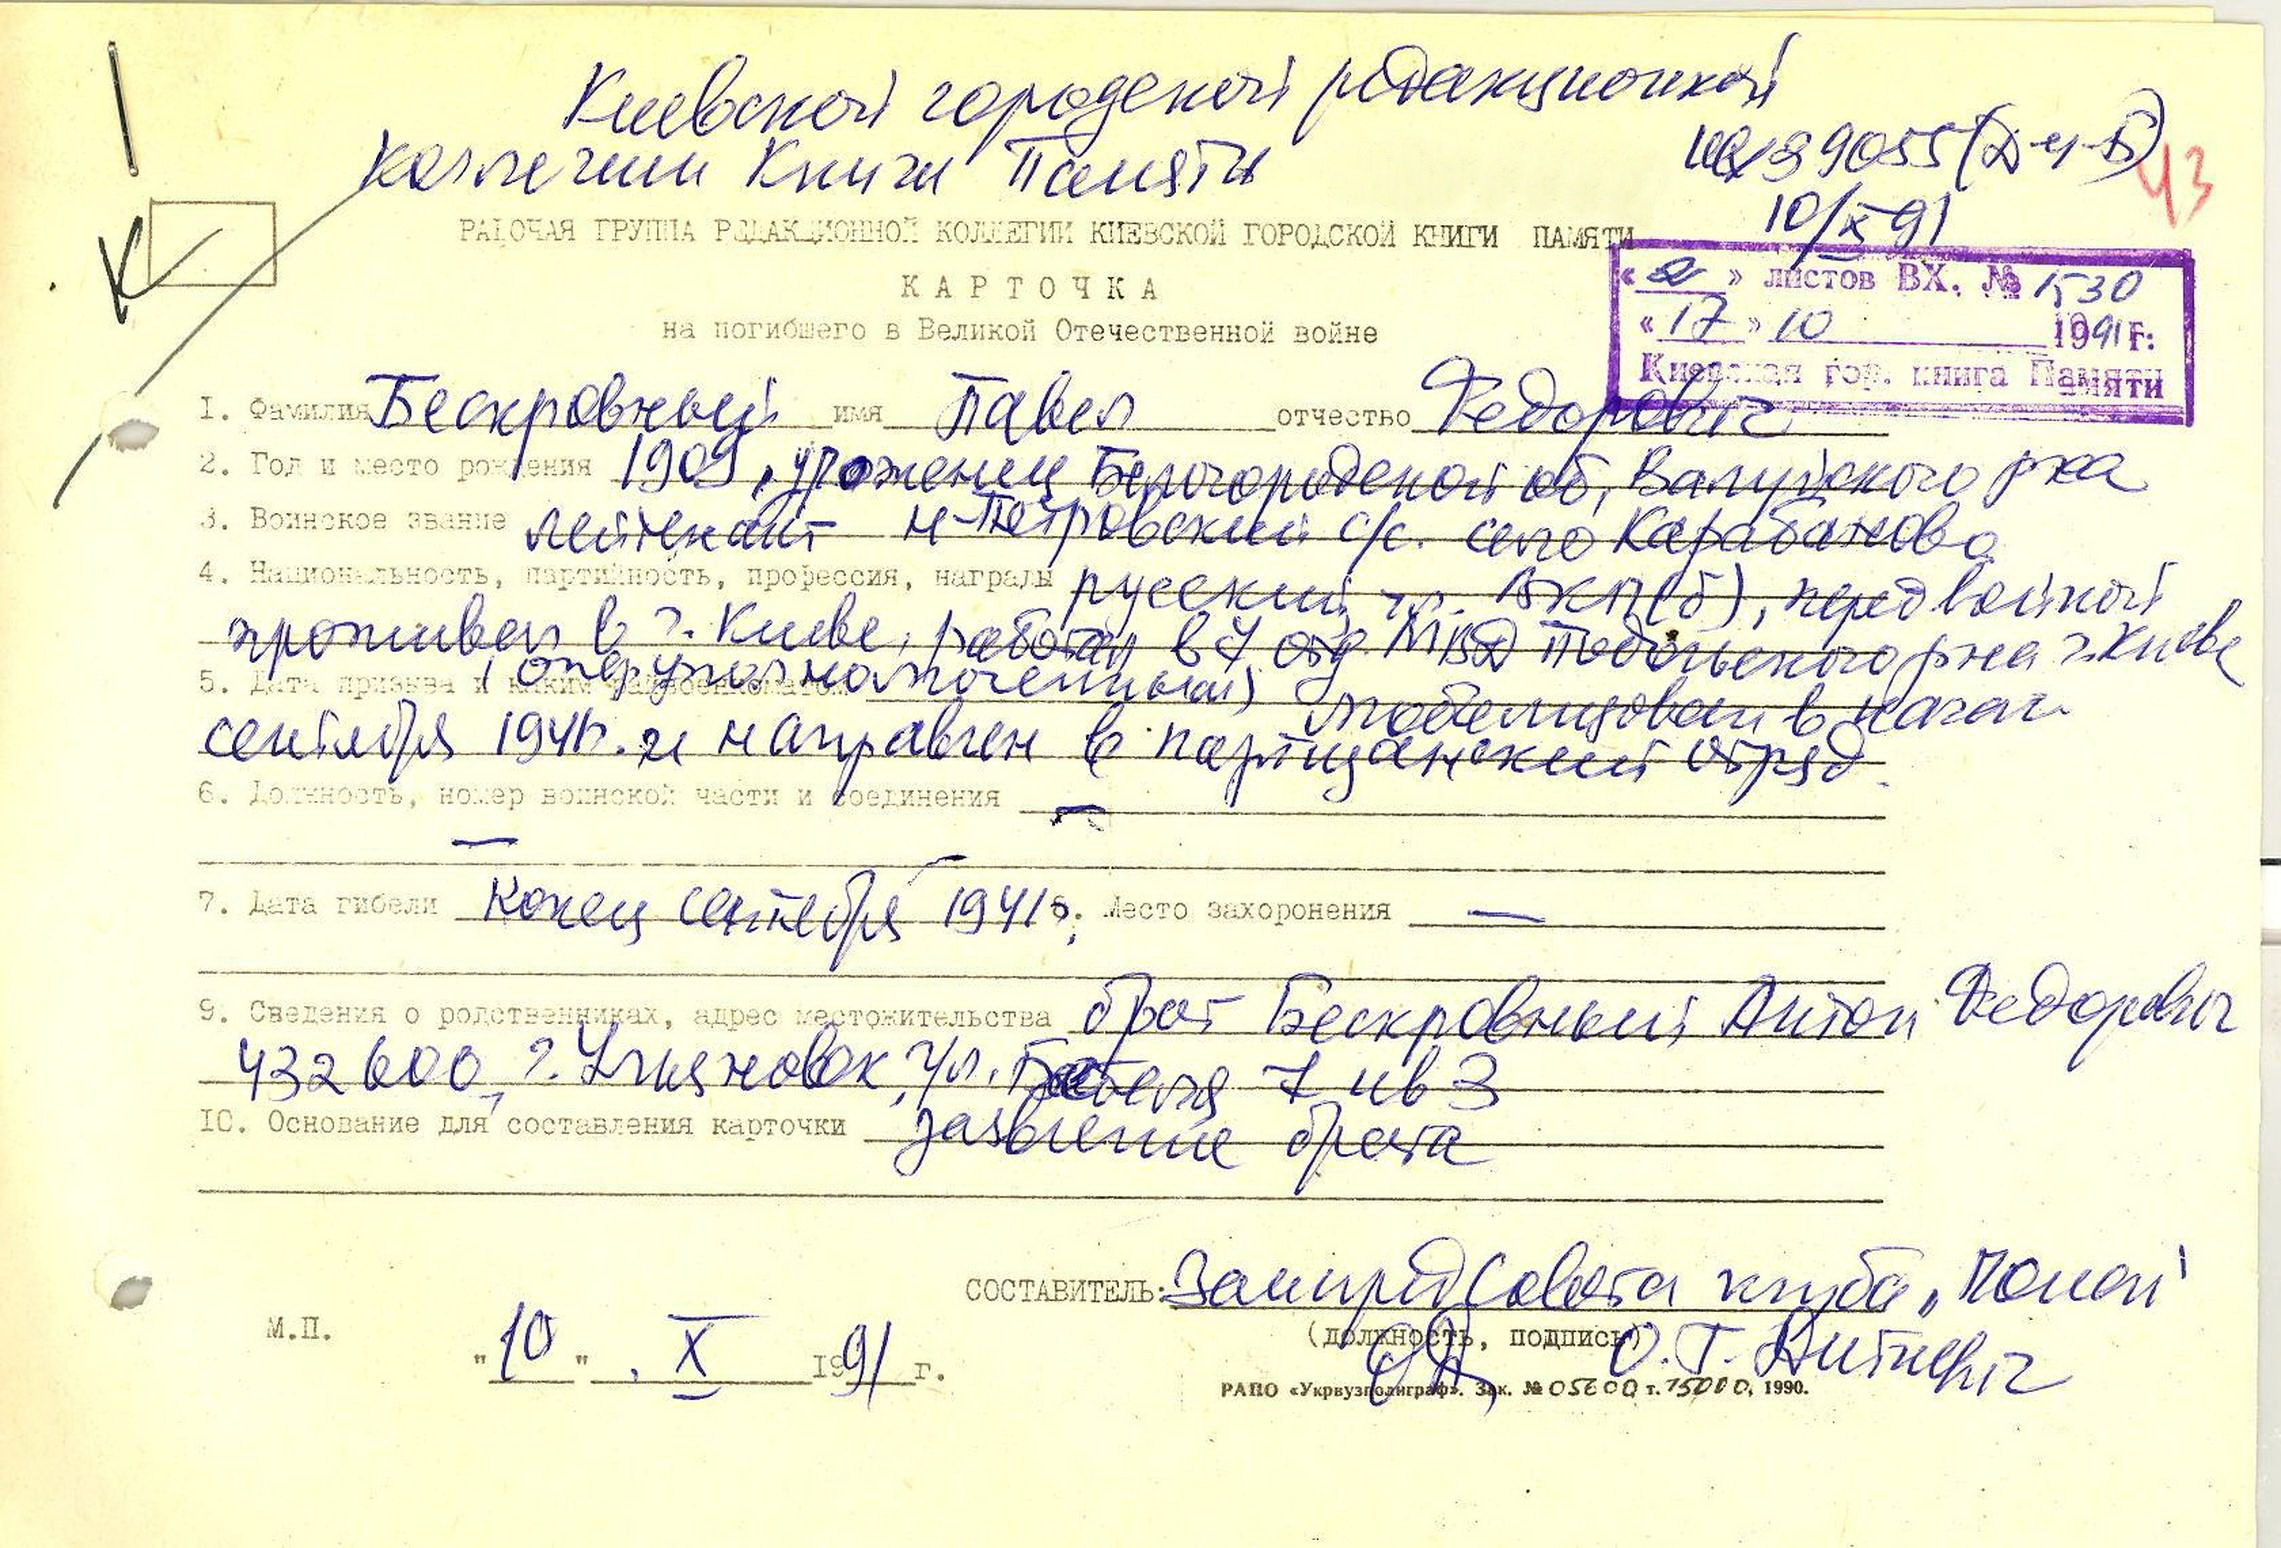 Киевской городской редакционной
коллегии Книги Памяти
10/X 91
43
РАБОЧАЯ ГРУППА РЕДАКЦИОННОЙ КОЛЛЕГИИ КИЕВСКОЙ ГОРОДСКОЙ КНИГИ ПАМЯТИ
КАРТОЧКА
на погибшего в Великой Отечественной войне
« 2 » листов ВХ. № 1530
« 17 » 10 1991 г.
Киевская гор. книга Памяти
1. Фамилия Бескровный имя Павел отчество Федорович
2. Год и место рождения 1909, уроженец Белгородской об, Валуйского р-на
3. Воинское звание лейтенант Н-Петровский с/с. село Карабаново
4. Национальность, партийность, профессия, награды русский, чл. ВКП(б), перед войной
проживал в г. Киеве, работал в 7 отд МВД Подольского р-на г. Киева
(оперуполномоченный)
5. Дата призыва и каким райвоенкоматом мобилизован в начале
сентября 1941г. и направлен в партизанский отряд.
6. Должность, номер воинской части и соединения —
—
7. Дата гибели Конец сентября 1941г. 8. Место захоронения —
9. Сведения о родственниках, адрес местожительства брат Бескровный Антон Федорович
432600, г. Ульяновск, ул. Бебеля 7 кв 3
10. Основание для составления карточки заявление брата
СОСТАВИТЕЛЬ: Зампред Совета клуба „Поиск"
(должность, подпись)
М.П.
"10" X 1991 г.
РАПО «Укрвузполиграф». Зак. № 05600 т. 15000, 1990.